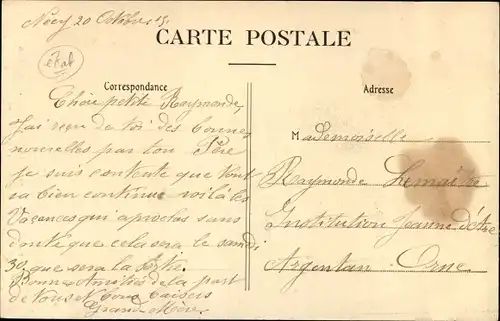 Nécy 20 Octobre 15
CARTE POSTALE
Correspondance
Adresse
Chère petite Raymonde,
J'ai reçu de toi des bonne
nouvelles par ton Père
je suis contente que tout
va bien continue voilà les
Vacances qui aproches sans
doute que cela sera le samedi
30, que sera la
Bonne Amitiés de la part
de Nous Bons Baisers
Grand-Mère
Mademoiselle
Raymonde Lemaître
Institution Jeanne d'Arc
Argentan Orne